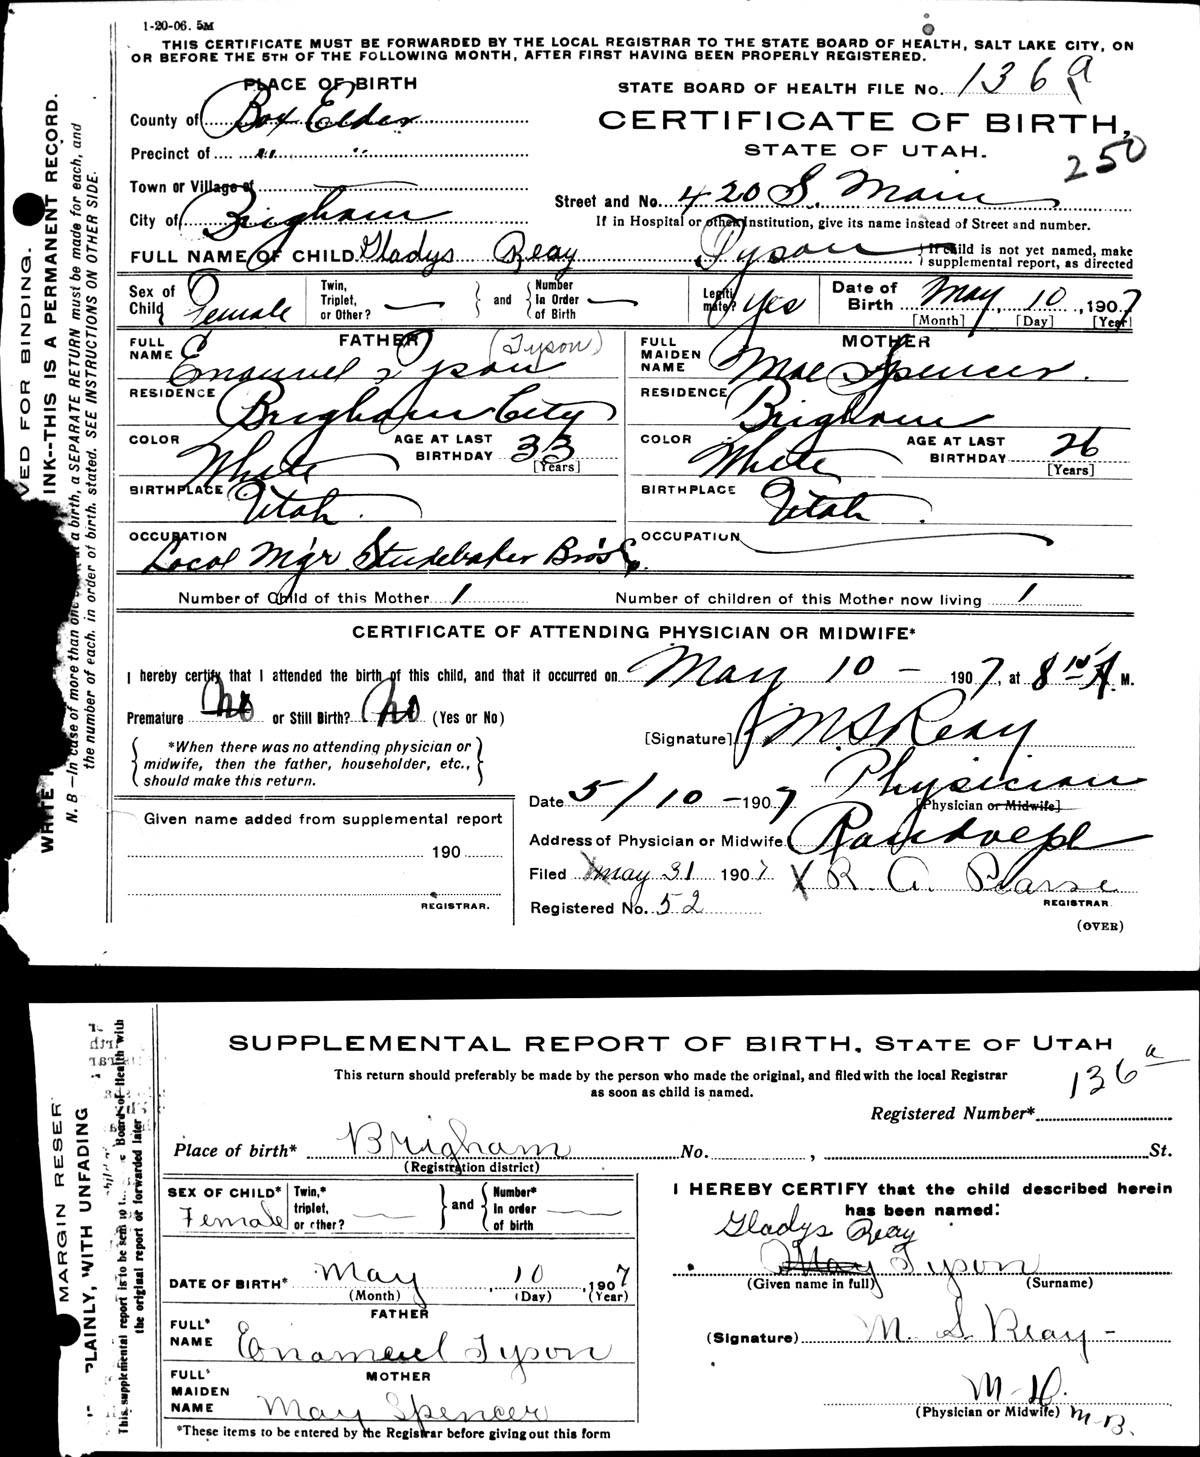 1-20-06. 5M
THIS CERTIFICATE MUST BE FORWARDED BY THE LOCAL REGISTRAR TO THE STATE BOARD OF HEALTH, SALT LAKE CITY, ON
OR BEFORE THE 5TH OF THE FOLLOWING MONTH, AFTER FIRST HAVING BEEN PROPERLY REGISTERED.
PLACE OF BIRTH
STATE BOARD OF HEALTH FILE No. 136a
County of Box Elder
CERTIFICATE OF BIRTH,
Precinct of " "
STATE OF UTAH.
250
Town or Village of
Street and No. 420 S. Main
City of Brigham
If in Hospital or other Institution, give its name instead of Street and number.
FULL NAME OF CHILD Gladys Reay Tyson
If child is not yet named, make
supplemental report, as directed
Sex of Child Female
Twin, Triplet, or Other?
and
Number In Order of Birth
Legitimate? Yes
Date of Birth May 10, 1907
[Month] [Day] [Year]
FATHER
FULL NAME Emanuel Tyson (Tyson)
MOTHER
FULL MAIDEN NAME Mae Spencer.
RESIDENCE Brigham City
RESIDENCE Brigham
COLOR White
AGE AT LAST BIRTHDAY 33 [Years]
COLOR White
AGE AT LAST BIRTHDAY 26 [Years]
BIRTHPLACE Utah.
BIRTHPLACE Utah.
OCCUPATION Local Mgr Studebaker Bros Co.
OCCUPATION
Number of Child of this Mother 1
Number of children of this Mother now living 1
CERTIFICATE OF ATTENDING PHYSICIAN OR MIDWIFE*
I hereby certify that I attended the birth of this child, and that it occurred on May 10 - 1907, at 8 15 A. M.
Premature No or Still Birth? No (Yes or No)
[Signature] M. S. Reay
*When there was no attending physician or
midwife, then the father, householder, etc.,
should make this return.
Physician
[Physician or Midwife]
Date 5/10 - 1907
Given name added from supplemental report
190
REGISTRAR.
Address of Physician or Midwife Randolph
Filed May 31 1907
X R. A. Pearse
REGISTRAR
Registered No. 52
(OVER)
VED FOR BINDING.
WRITE INK--THIS IS A PERMANENT RECORD.
N. B.—In case of more than one at a birth, a SEPARATE RETURN must be made for each, and
the number of each, in order of birth, stated. SEE INSTRUCTIONS ON OTHER SIDE.
SUPPLEMENTAL REPORT OF BIRTH, STATE OF UTAH
136a
This return should preferably be made by the person who made the original, and filed with the local Registrar
as soon as child is named.
Registered Number*
Place of birth* Brigham No. , St.
(Registration district)
SEX OF CHILD* Female
Twin,* triplet, or other?
and
Number* In order of birth
I HEREBY CERTIFY that the child described herein
has been named:
Gladys Reay
May Tyson
(Given name in full) (Surname)
DATE OF BIRTH* May 10, 1907
(Month) (Day) (Year)
FATHER
FULL* NAME Enameul Tyson
(Signature) M. S. Reay -
MOTHER
FULL* MAIDEN NAME May Spencer
M. D.
(Physician or Midwife) M-B.
*These items to be entered by the Registrar before giving out this form
MARGIN RESER
PLAINLY, WITH UNFADING
This supplemental report is to be sent to Board of Health with
the original report or forwarded later